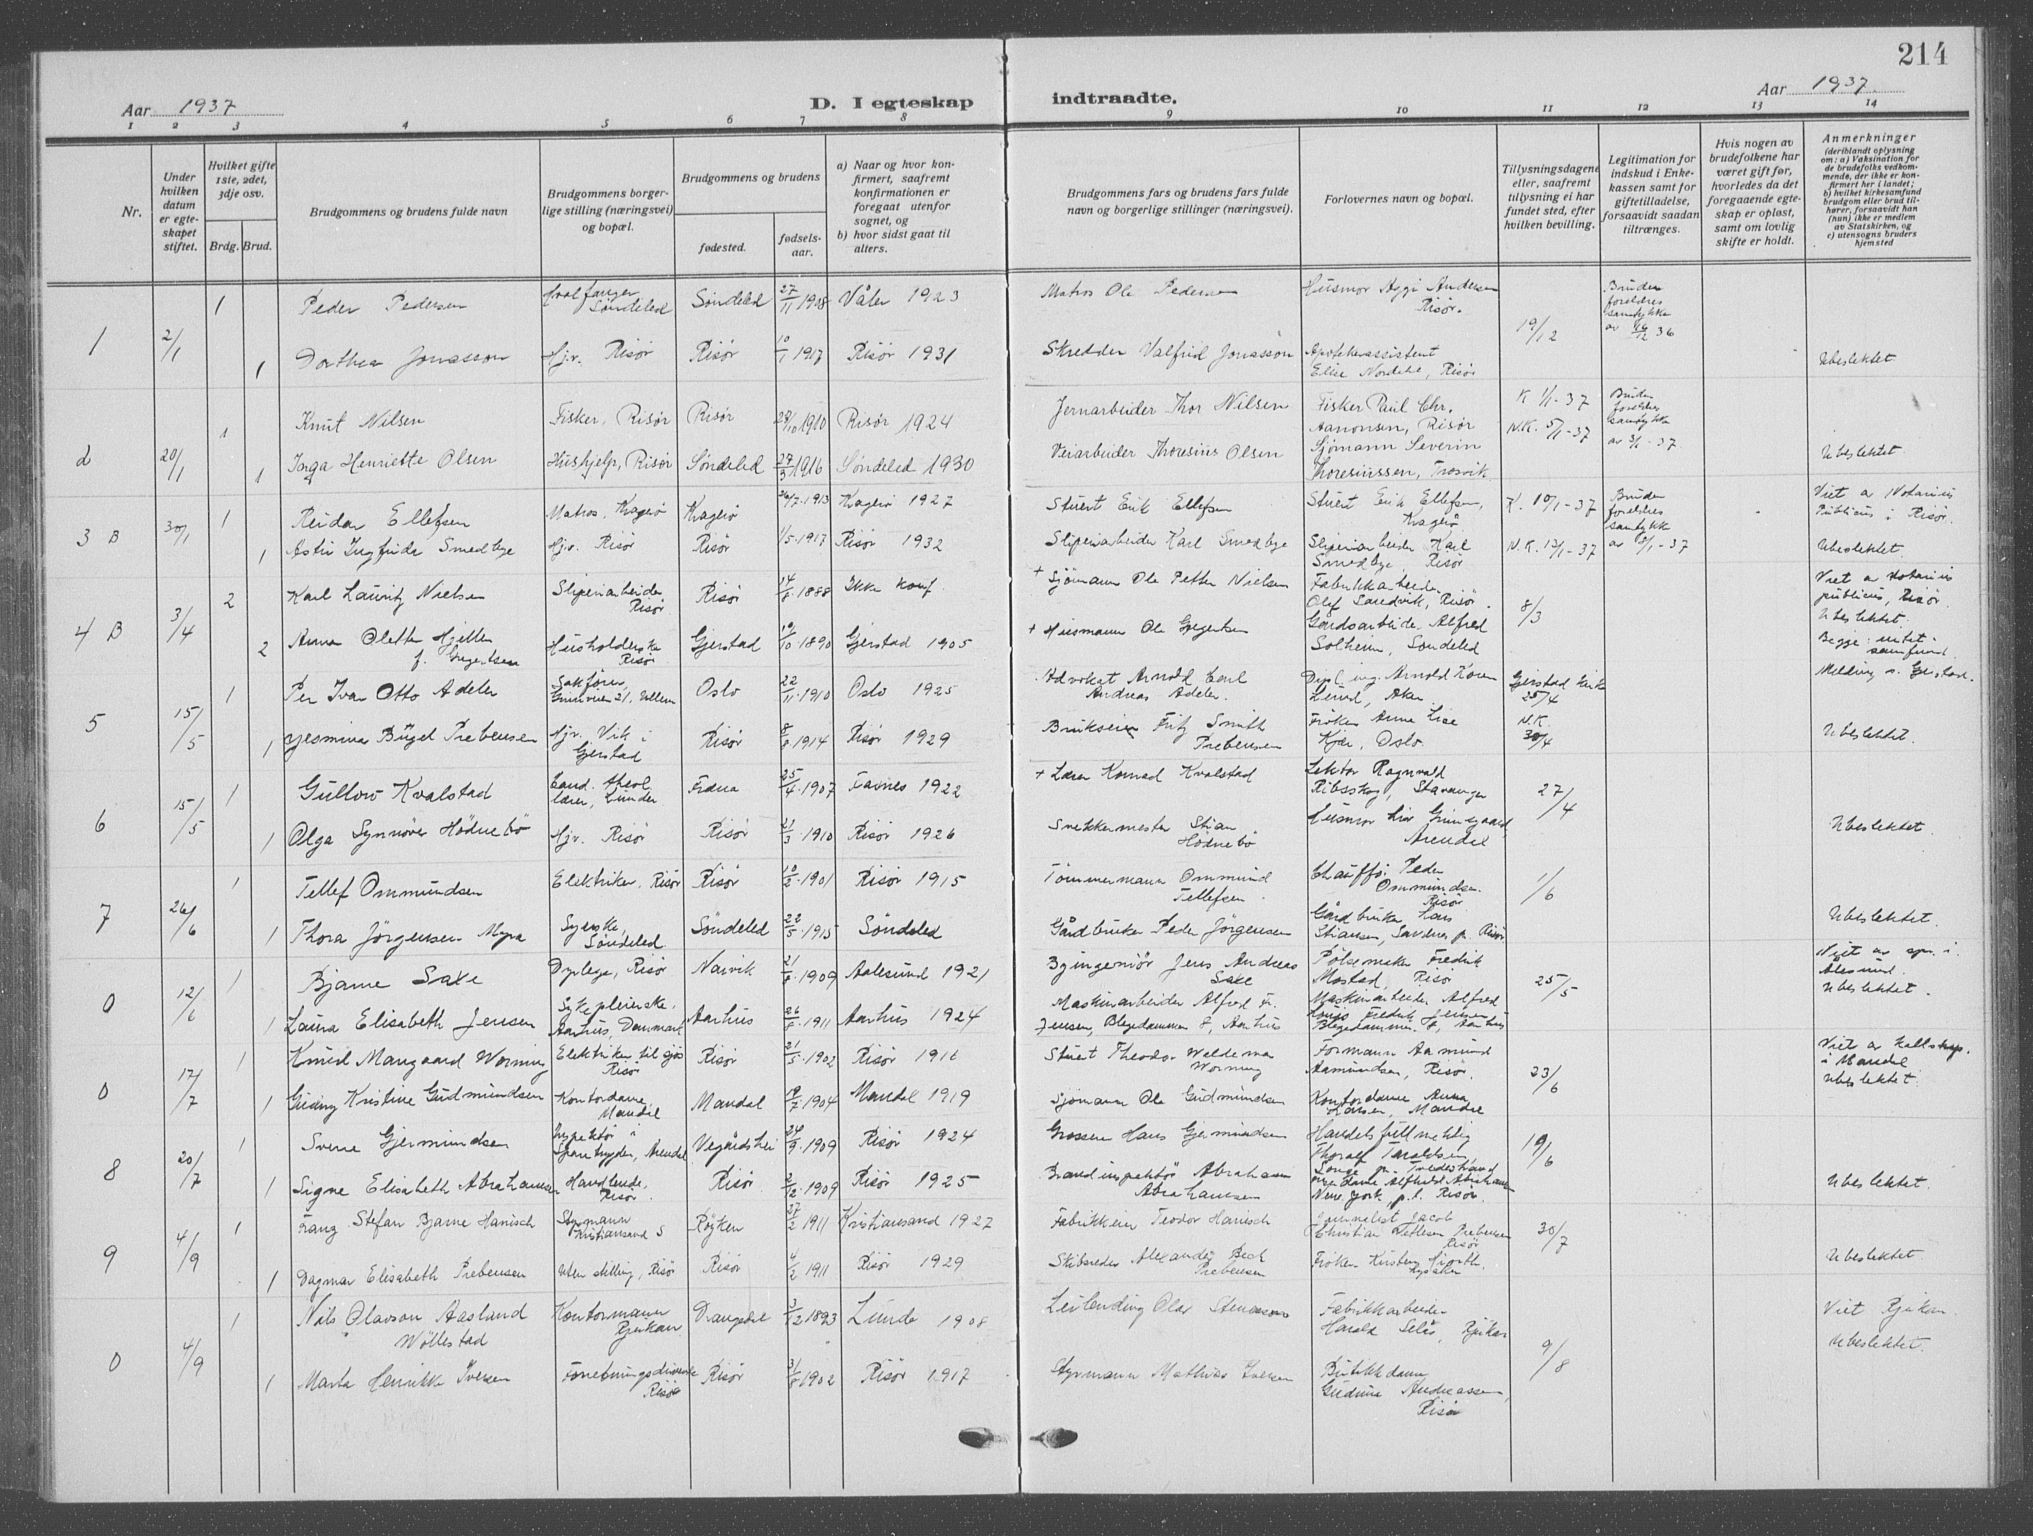 214
Aar 1937
D. I egteskap indtraadte.
Aar 1937.
1 2 3 4 5 6 7 8 9 10 11 12 13 14
Nr.
Under hvilken datum er egteskapet stiftet.
Hvilket gifte 1ste, 2det, 3dje osv.
Brdg. Brud.
Brudgommens og brudens fulde navn
Brudgommens borgerlige stilling (næringsvei) og bopæl.
Brudgommens og brudens
fødested. fødselsaar.
a) Naar og hvor konfirmert, saafremt konfirmationen er foregaat utenfor sognet, og
b) hvor sidst gaat til alters.
Brudgommens fars og brudens fars fulde navn og borgerlige stillinger (næringsvei).
Forlovernes navn og bopæl.
Tillysningsdagene eller, saafremt tillysning ei har fundet sted, efter hvilken bevilling.
Legitimation for indskud i Enkekassen samt for giftetilladelse, forsaavidt saadan tiltrænges.
Hvis nogen av brudefolkene har været gift før, hvorledes da det foregaaende egteskap er opløst, samt om lovlig skifte er holdt.
Anmerkninger (deriblandt oplysning om: a) Vaksination for de brudefolks vedkommende, der ikke er konfirmert her i landet; b) hvilket kirkesamfund brudgom eller brud tilhører, forsaavidt han (hun) ikke er medlem av Statskirken, og c) utensogns bruders hjemsted
1 2/1 1 Peder Pedersen Hvalfanger Søndeled Søndeled 27/11 1908 Våler 1923 Matros Ole Pedersen Husmor Aggi Andersen Risør. 19/12 Bruden foreldres samtykke av 16/12 36
1 Dorthea Jonasson Hjv. Risør Risør 10/1 1917 Risør 1931 Skredder Valfrid Jonasson Apotekerassistent Elise Nordbø, Risør Ubeslektet.
2 20/1 1 Knut Nilsen Fisker, Risør Risør 28/10 1910 Risør 1924 Jernarbeider Thor Nilsen Fisker Paul Chr. Aanonsen, Risør K. 1/1-37 N.K. 5/1-37 Bruden foreldres samtykke av 3/1-37
1 Inga Henriette Olsen Hushjelp, Risør Søndeled 27/3 1916 Søndeled 1930 Veiarbeider Thoresius Olsen Sjømann Severin Thoresiussen, Trosvik Ubeslektet.
3 B 30/1 1 Reidar Ellefsen Matros, Kragerø Kragerø 26/7-1913 Kragerø 1927 Stuert Erik Ellefsen Stuert Erik Ellefsen, Kragerø K. 10/1-37 Bruden foreldres samtykke av 8/1-37 Viet av Notarius Publicus i Risør.
1 Astri Ingfrida Smedbye Hjv. Risør Risør 1/5-1917 Risør 1932 Sliperiarbeider Karl Smedbye Sliperiarbeider Karl Smedbye, Risør N.K. 17/1-37 Ubeslektet.
4 B 3/4 2 Karl Lauritz Nielsen Sliperiarbeider, Risør Risør 14/8 1888 Ikke konf. + Sjømann Ole Petter Nielsen Fabrikkarbeider Olef Sandvik, Risør. 8/3 Viet av Notarius publicus, Risør.
2 Anna Olette Hjellen f. Gregertsen Husholderske Risør Gjerstad 19/10 1890 Gjerstad 1905 + Husmann Ole Gregertsen Gårdsarbeider Alfred Solheim, Søndeled Ubeslektet. Begge utet. samfund
5 15/5 1 Per Ivar Otto Adeler Sakfører, Ullern Oslo 22/11 1910 Oslo 1925 Advokat Arnold Carl Andreas Adeler. Dipl. ing. Arnold Koren Lund, Aker Gjerstad kirke 25/4 Melding s. Gjerstad.
1 Jesmina Bügel Prebensen Hjv. Vik i Gjerstad Risør 8/8 1914 Risør 1929 Brukseier Fritz Smith Prebensen Frøken Anne Lise Kjær, Oslo. N.K. 30/4 Ubeslektet.
6 15/5 1 Gullow Kvalstad Cand. theol. lærer, Lunder Fræna 25/4-1907 1922 + Lærer Konrad Kvalstad Lektor Ragnvald Ribsskog, Stavanger 27/4
1 Olga Synnøve Hødnebø Hjv. Risør Risør 21/3 1910 Risør 1926 Snekkermester Stian Hødnebø Husmor Liv Grimsgaard Arendal Ubeslektet.
7 26/6 1 Tellef Ommundsen Elektriker, Risør Risør 10/2-1901 Risør 1915 Tømmermann Ommund Tellefsen. Chauffør Peder Ommundsen. Risør 1/6
1 Thora Jørgensen Myra Syerske, Søndeled Søndeled 22/5-1915 Søndeled Gårdbruker Peder Jørgensen Gårdbruker Lars Stiansen, Sandnes pr. Risør Ubeslektet.
0 12/6 1 Bjarne Saxe Dyrlege, Risør Narvik 21/8-1909 Aalesund 1921 Byingeniør Jens Andreas Saxe Pølsemaker Fredrik Mostad, Risør 25/5 Viet av spr. i Ålesund.
1 Laura Elisabeth Jensen Sykepleierske. Aarhus, Danmark Aarhus 26/8-1911 Aarhus 1924 Maskinarbeider Alfred Fr. Jensen, Blegedammen 8, Aarhus Maskinarbeider Alfred Fredrik Jensen Blegedammen 8, Aarhus Ubeslektet.
0 17/7 1 Knud Maugaard Worning Elektriker til sjøs Risør Risør 21/5-1902 Risør 1916 Stuert Theodor Waldemar Worning Formann Aamund Aamundsen, Risør. 23/6 Viet av kallskap. i Mandal
1 Gudny Kristine Gudmundsen Kontordame, Mandal Mandal 19/7-1904 Mandal 1919 Sjømann Ole Gudmundsen Kontordame Anna Larsen, Mandal Ubeslektet.
8 20/7 1 Sverre Gjermundsen Inspektør i Sparetrygden, Arendal Vegårdshei 24/9-1909 Risør 1924 Grosserer Hans Gjermundsen Handelsfullmektig Thoralf Taraldsen, Songe pr. Tvedestrand 19/6
1 Signe Elisabeth Abrahamsen Handlende, Risør. Risør 2/12-1909 Risør 1925 Brandinspektør Abraham Abrahamsen Alfhild Abrahamsen New York p.t. Risør. Ubeslektet.
9 4/9 1 Franz Stefan Bjarne Hanisch Styrmann Kristiansand S Røyken 27/2 1911 Kristiansand 1927 Fabrikkeier Teodor Hanisch Journalist Jacob Christian Ditlefsen Prebensen Risør 30/7
1 Dagmar Elisabeth Prebensen Uten stilling, Risør Risør 4/2 1911 Risør 1929 Skibsreder Alexander Beck Prebensen Frøken Kirsten Hjorth, Lysaker Ubeslektet
0 4/9 1 Nils Olavson Aasland Wøllestad Kontormann Rjukan Drangedal 3/12 1893 Lunde 1908 Leilending Olav Stenerson Fabrikkarbeider Harald Selås, Rjukan 9/8 Viet Rjukan.
1 Marta Henrikke Iversen Forretningsdrivende Risør Risør 31/8 1902 Risør 1917 Styrmann Mathias Iversen Butikkdame Gudrun Andreassen, Risør Ubeslektet.